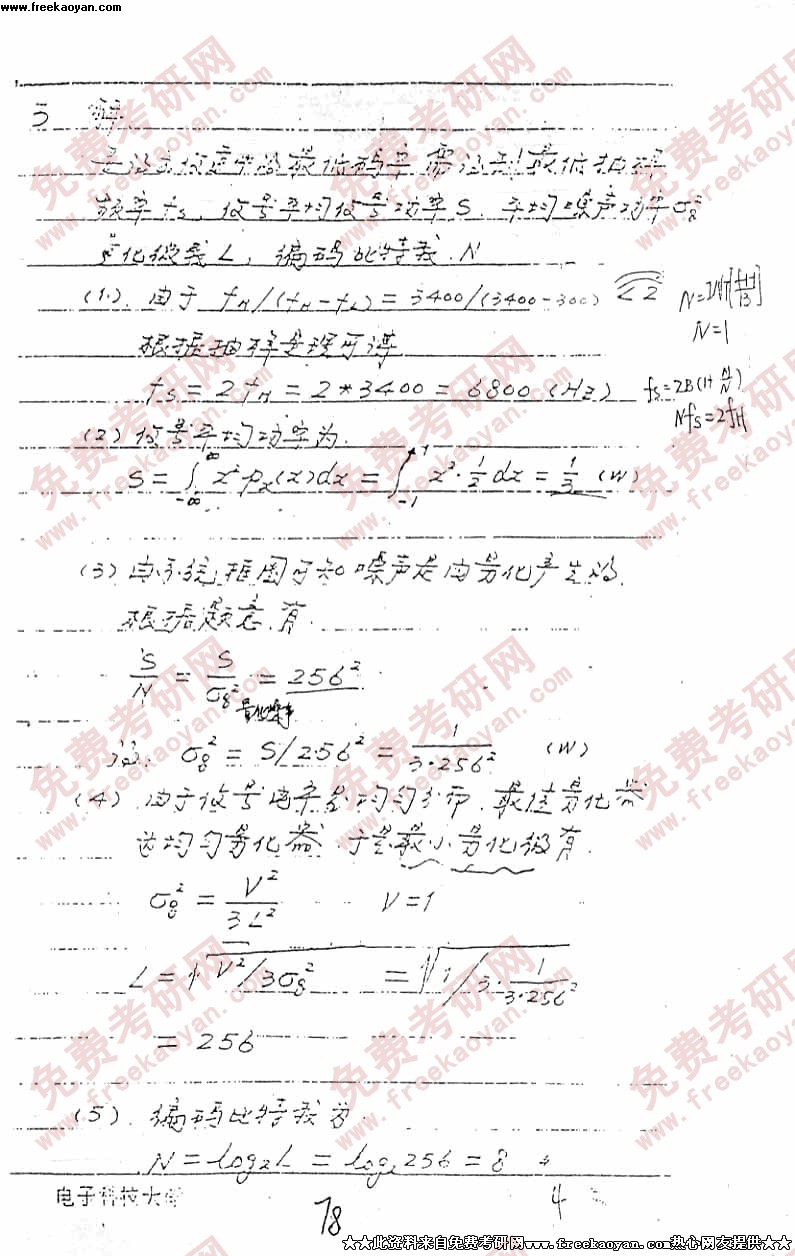 www.freekaoyan.com
3 解
是没在信道中的最低码率需得到最低抽样
频率 fs、信号平均信号功率 S、平均噪声功率 σq²
量化级数 L，编码比特数 N
(1). 由于 fH/(fH-fL) = 3400/(3400-300) < 2
N=INT[fH/B]
N=1
根据抽样定理可得
fs = 2fH = 2*3400 = 6800 (Hz)
fs=2B(1+M/N)
Nfs=2fH
(2) 信号平均功率为
S = ∫_{-∞}^{∞} x² px(x)dx = ∫_{-1}^{+1} x²·1/2 dx = 1/3 (W)
(3) 由系统框图可知噪声是由量化产生的,
根据题意,有
S/N = S/σq² = 256²
量化噪声
σq² = S/256² = 1/(3·256²) (W)
(4) 由于信号概率是均匀分布,最佳量化器
为均匀量化器,于是最小量化级有
σq² = V²/3L² V=1
L = √(V²/3σq²) = √(1/3·1/(3·256²))
= 256
(5). 编码比特数为
N = log₂L = log₂256 = 8
电子科技大学
78
4
★★此资料来自免费考研网www.freekaoyan.com热心网友提供★★
免费考研网
www.freekaoyan.com